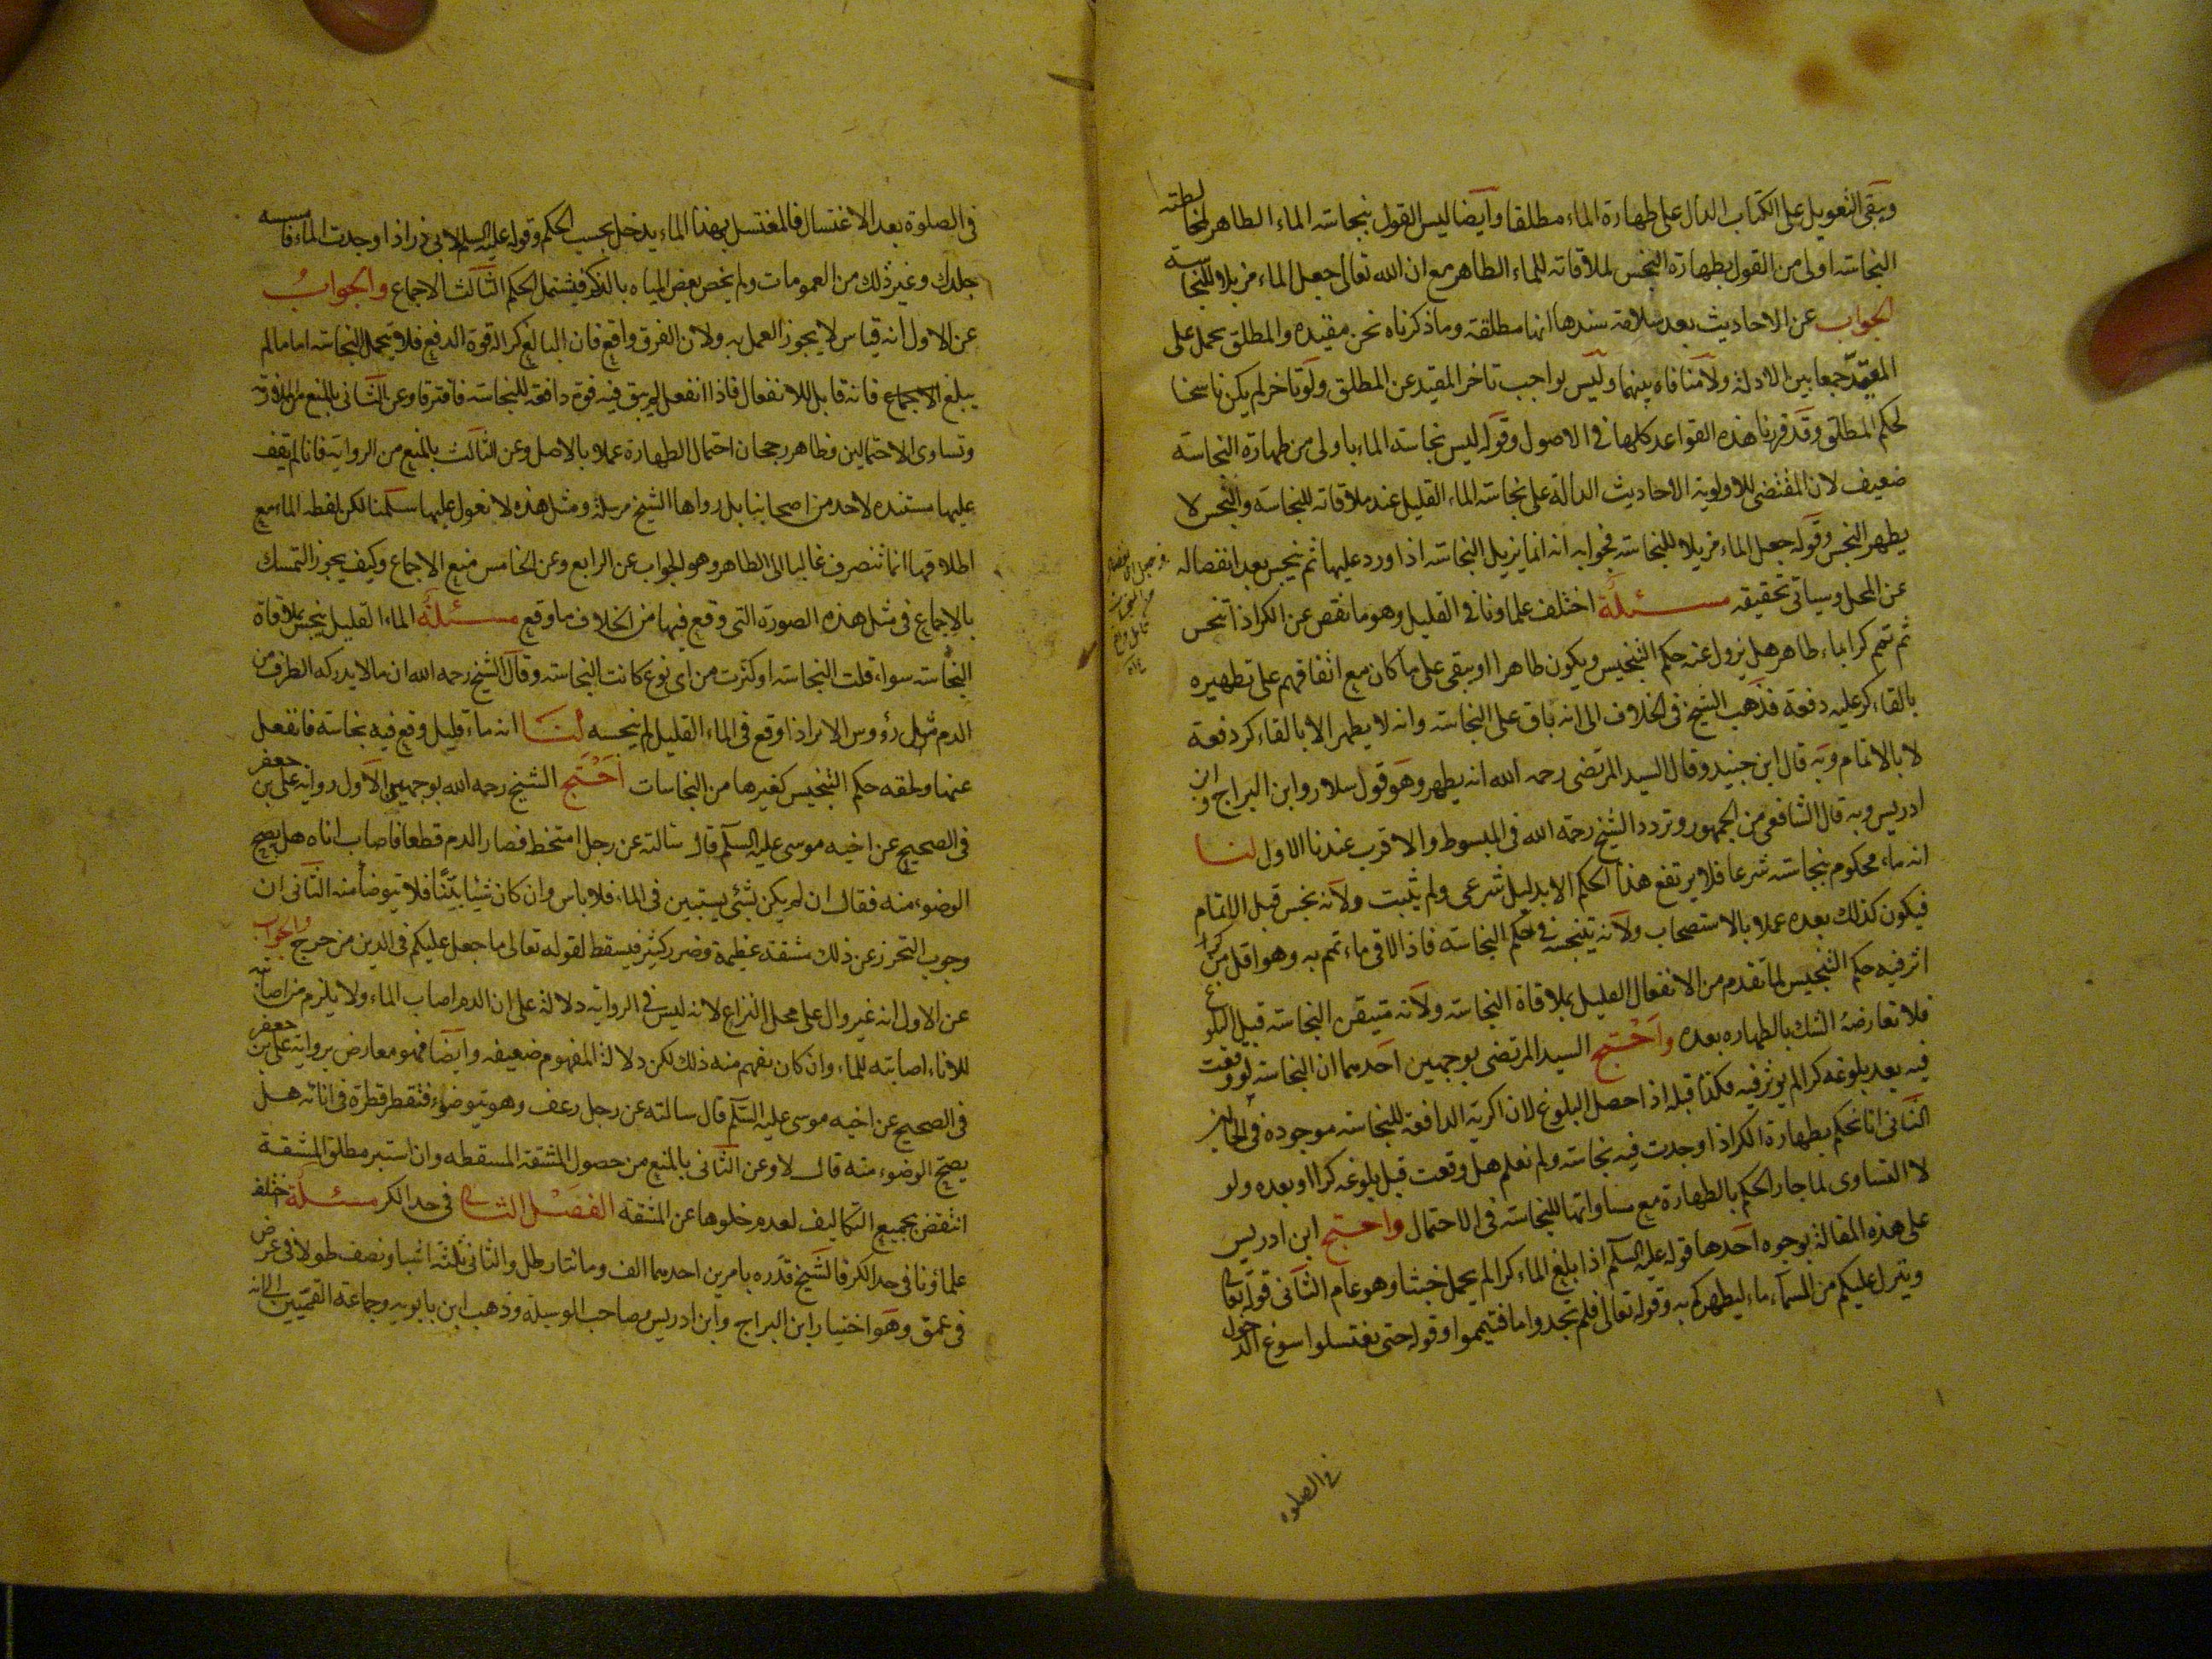 ويبقى التعويل على الكتاب الدال على طهارة الماء مطلقا وايضا ليس القول بنجاسته الماء الطاهر لمخالطته
النجاسه اولى من القول بطهارة النجس لملاقاته للماء الطاهر مع ان الله تعالى جعل الماء مزيلا للنجاسة
الجواب عن الاحاديث بعد سلامة سندها انها مطلقة وما ذكرناه نحن مقيده والمطلق يحمل على
المقيد جمعا بين الادلة ولا منافاه بينهما وليس بواجب تاخر المقيد عن المطلق ولو تاخر لم يكن ناسخا
لحكم المطلق وقد قررنا هذه القواعد كلها في الاصول وقوله ليس نجاسة الماء باولى من طهارة النجاسة
ضعيف لان المقتضى للاولوية الاحاديث الدالة على نجاسة الماء القليل عند ملاقاته للنجاسة والنجس لا
يطهر النجس وقوله جعل الماء مزيلا للنجاسة فجوابه انه انما يزيل النجاسة اذا ورد عليها ثم ينجس بعد انفصاله
عن المحل وسياتي تحقيقه مسئلة اختلف علماونا في القليل وهو ما نقص عن الكر اذا تنجس
ثم تمم كرا بماء طاهر هل يزول عنه حكم التنجيس ويكون طاهرا او يبقى على ما كان مع اتفاقهم على تطهيره
بالقاء كر عليه دفعة فذهب الشيخ في الخلاف الى انه باق على النجاسة وانه لا يطهر الا بالقاء كر دفعة
لا بالاتمام وبه قال ابن جنيد وقال السيد المرتضى رحمه الله انه يطهر وهو قول سلار وابن البراج وابن
ادريس وبه قال الشافعي من الجمهور وتردد الشيخ رحمة الله في المبسوط والاقرب عندنا الاول لنا
انه ماء محكوم بنجاسته شرعا فلا يرتفع هذا الحكم الا بدليل شرعي ولم يثبت ولانه نجس قبل الاتمام
فيكون كذلك بعده عملا بالاستصحاب ولانه بتنجسه في حكم النجاسة فاذا لاقى ماء تمم به وهو اقل من كر
اثر فيه حكم التنجيس لما تقدم من الانفعال القليل بملاقاة النجاسة ولانه متيقن النجاسة قبل البلوغ
فلا تعارضه الشك بالطهاره بعده واحتج السيد المرتضى بوجهين احدهما ان النجاسة لو وقعت
فيه بعد بلوغه كرا لم يوثر فيه فكذا قبله اذا حصل البلوغ لان اكرية الدافعة للنجاسة موجودة في الحالين
الثاني انا نحكم بطهارة الكر اذا وجدت فيه نجاسة ولم نعلم هل وقعت قبل بلوغه كرا او بعده ولو
لا التساوى لما جاز الحكم بالطهارة مع مساواتها للنجاسة في الاحتمال واحتج ابن ادريس
على هذه المقالة بوجوه احدها قوله عليه السلم اذا بلغ الماء كرا لم يحمل خبثا وهو عام الثاني قوله تعالى
وينزل عليكم من السماء ماء ليطهركم به وقوله تعالى فلم تجدوا ماء فتيمموا وقوله حتى تغتسلوا سوغ الدخول
في الصلوه
في الصلوة بعد الاغتسال فالمغتسل بهذا الماء يدخل بحسب الحكم وقوله عليه السلم لابي ذر اذا وجدت الماء فامسسه
جلدك وغير ذلك من العمومات ولم يخص بعض المياه بالذكر فيشتمل الحكم الثالث الاجماع والجواب
عن الاول انه قياس لا يجوز العمل به ولان الفرق واقع فان البالغ كرا له قوة الدفع فلا يحمل النجاسة اما ما لم
يبلغ الاجماع فانه قابل للانفعال فاذا انفعل لم يبق فيه قوة دافعة للنجاسة فافترقا وعن الثاني بالمنع من الملازمة
وتساوى الاحتمالين وظاهر رجحان احتمال الطهارة عملا بالاصل وعن الثالث بالمنع من الرواية فانا لم نقف
عليها مستنده لاحد من اصحابنا بل رواها الشيخ مرسلة ومثل هذه لا نعول عليها سلمنا لكن لفظه الماء مع
اطلاقها انما تنصرف غالبا الى الطاهر وهو الجواب عن الرابع وعن الخامس منع الاجماع وكيف يجوز التمسك
بالاجماع في مثل هذه الصورة التي وقع فيها من الخلاف ما وقع مسئلة الماء القليل ينجس بملاقاة
النجاسة سواء قلت النجاسة او كثرت من اى نوع كانت النجاسة وقال الشيخ رحمه الله ان ما لا يدركه الطرف من
الدم مثل رؤوس الابر اذا وقع في الماء القليل لم ينجسه لنا انه ماء قليل وقع فيه نجاسة فانفعل
عنها ولحقه حكم التنجيس كغيرها من النجاسات احتج الشيخ رحمه الله بوجهين الاول رواية على بن جعفر
في الصحيح عن اخيه موسى عليه السلم قال سالته عن رجل امتخط فصار الدم قطعا فاصاب اناه هل يصح
الوضوء منه فقال ان لم يكن بشئ يستبين في الماء فلا باس وان كان شيئا بينا فلا تتوضأ منه الثاني ان
وجوب التحرز عن ذلك مشقة عظيمة وضرر كثير فيسقط لقوله تعالى ما جعل عليكم في الدين من حرج والجواب
عن الاول انه غير دال على محل النزاع لانه ليس في الرواية دلالة على ان الدم اصاب الماء ولا يلزم من اصابته
للاناء اصابته للماء وان كان يفهم منه ذلك لكن دلالة المفهوم ضعيفه وايضا فهو معارض برواية على بن جعفر
في الصحيح عن اخيه موسى عليه السلم قال سالته عن رجل رعف وهو يتوضؤ فتقطر قطرة في انائه هل
يصح الوضوء منه قال لا وعن الثاني بالمنع من حصول المشقة المسقطه وان استبر مطلق المشقة
انتقض بجميع التكاليف لعدم خلوها عن المشقة الفصل الثاني في حد الكر مسئلة اختلف
علماؤنا في حد الكر فالشيخ قدره بامرين احدهما الف ومائتا رطل والثاني ثلثة اشبار ونصف طولا في عرض
في عمق وهو اختيار ابن البراج وابن ادريس وصاحب الوسيلة وذهب ابن بابويه وجماعة القميين الى انه